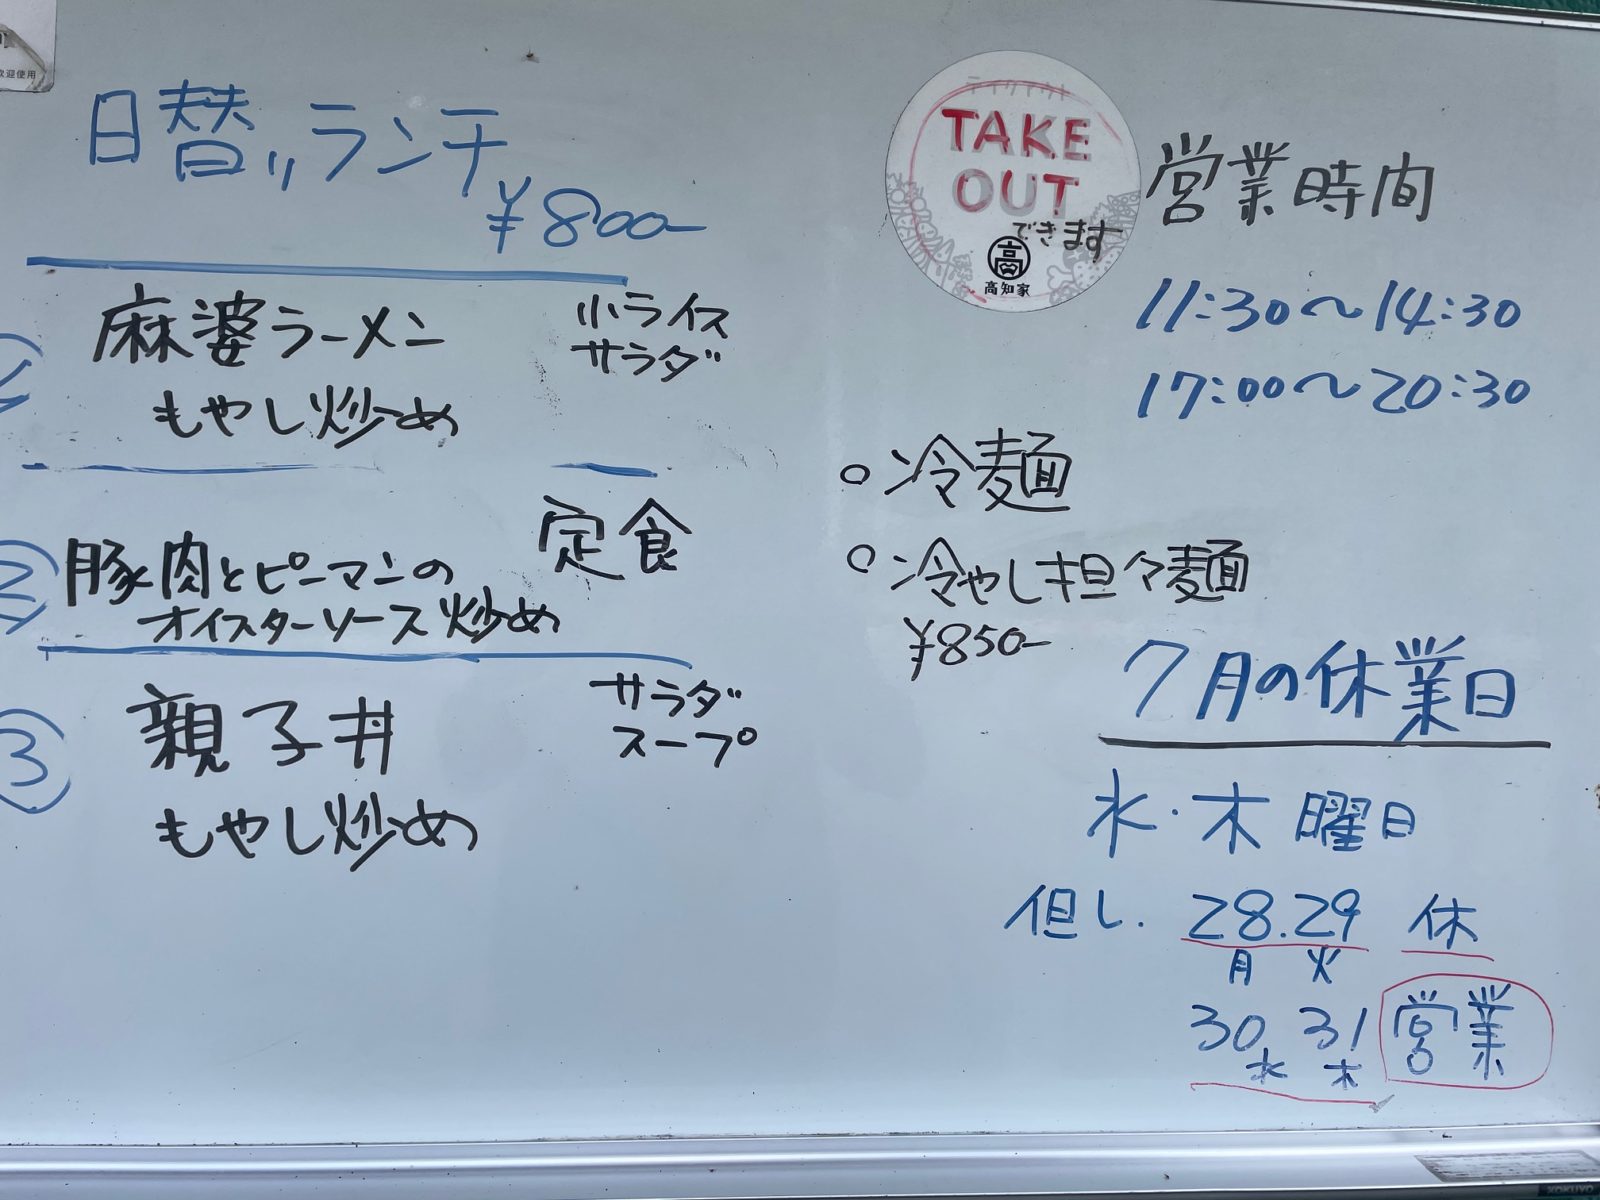 歓迎使用
日替りランチ
¥800-
麻婆ラーメン
もやし炒め
小ライス
サラダ
②
定食
豚肉とピーマンの
オイスターソース炒め
③
親子丼
もやし炒め
サラダ
スープ
テイクアウト
TAKE
OUT
できます
高
高知家
営業時間
11:30〜14:30
17:00〜20:30
○冷麺
○冷やし担々麺
¥850-
7月の休業日
水・木曜日
但し. 28.29 休
月 火
30 31 営業
水 木
KOKUYO